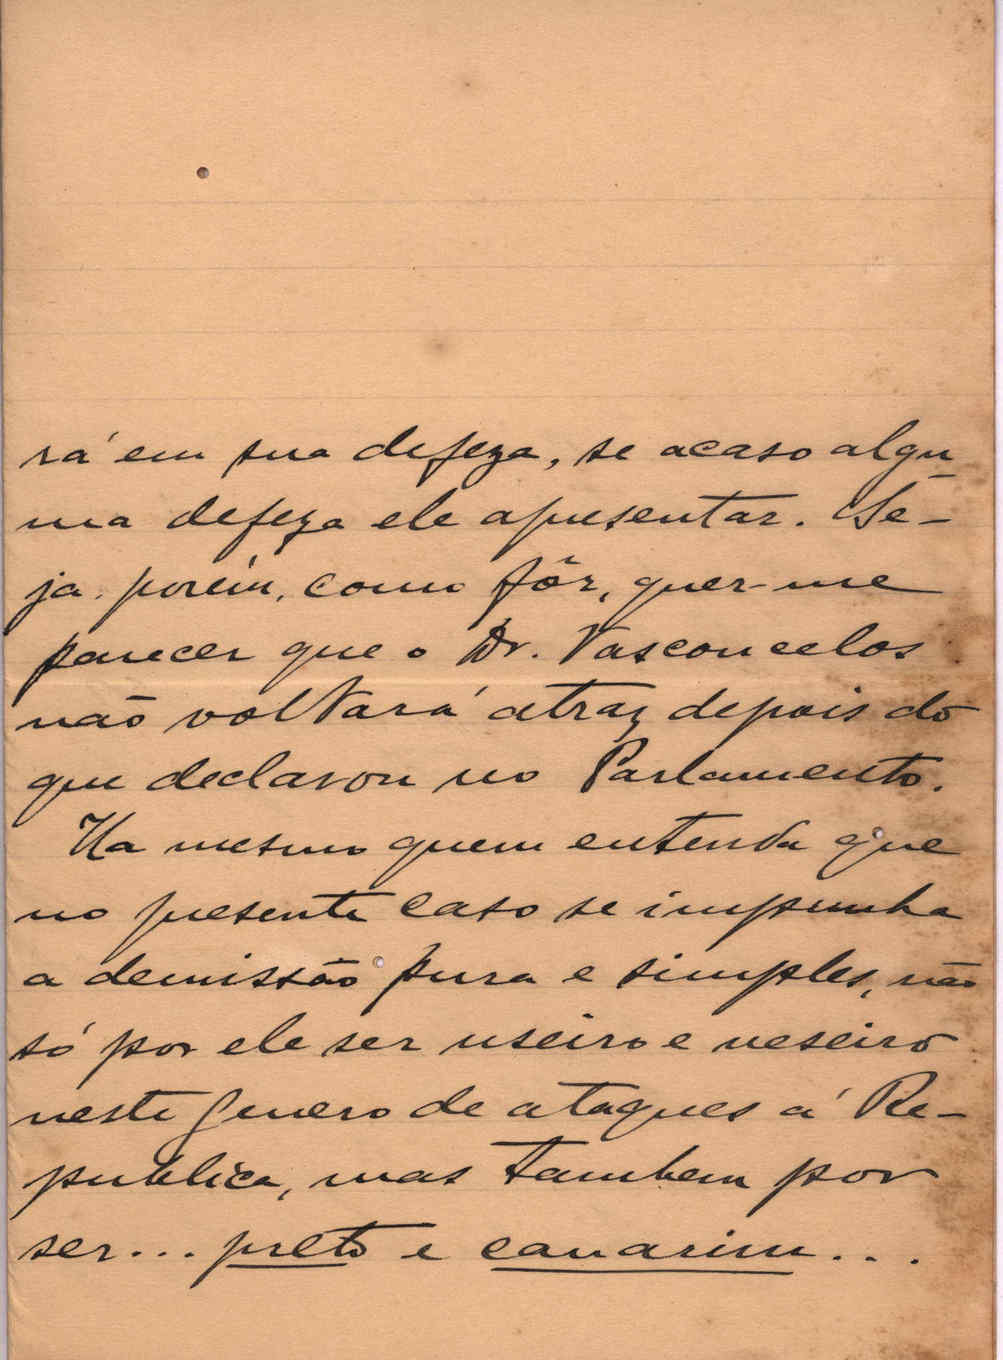 rá em sua defeza, se acaso algu
ma defeza ele apresentar. Se-
ja, porém, como fôr, quer-me
parecer que o Dr. Vasconcelos
não voltará atraz depois do
que declarou no Parlamento.
Ha mesmo quem entenda que
no presente caso se impunha
a demissão pura e simples, não
só por ele ser useiro e veseiro
neste genero de ataques á Re-
publica, mas tambem por
ser... preto e canarim...